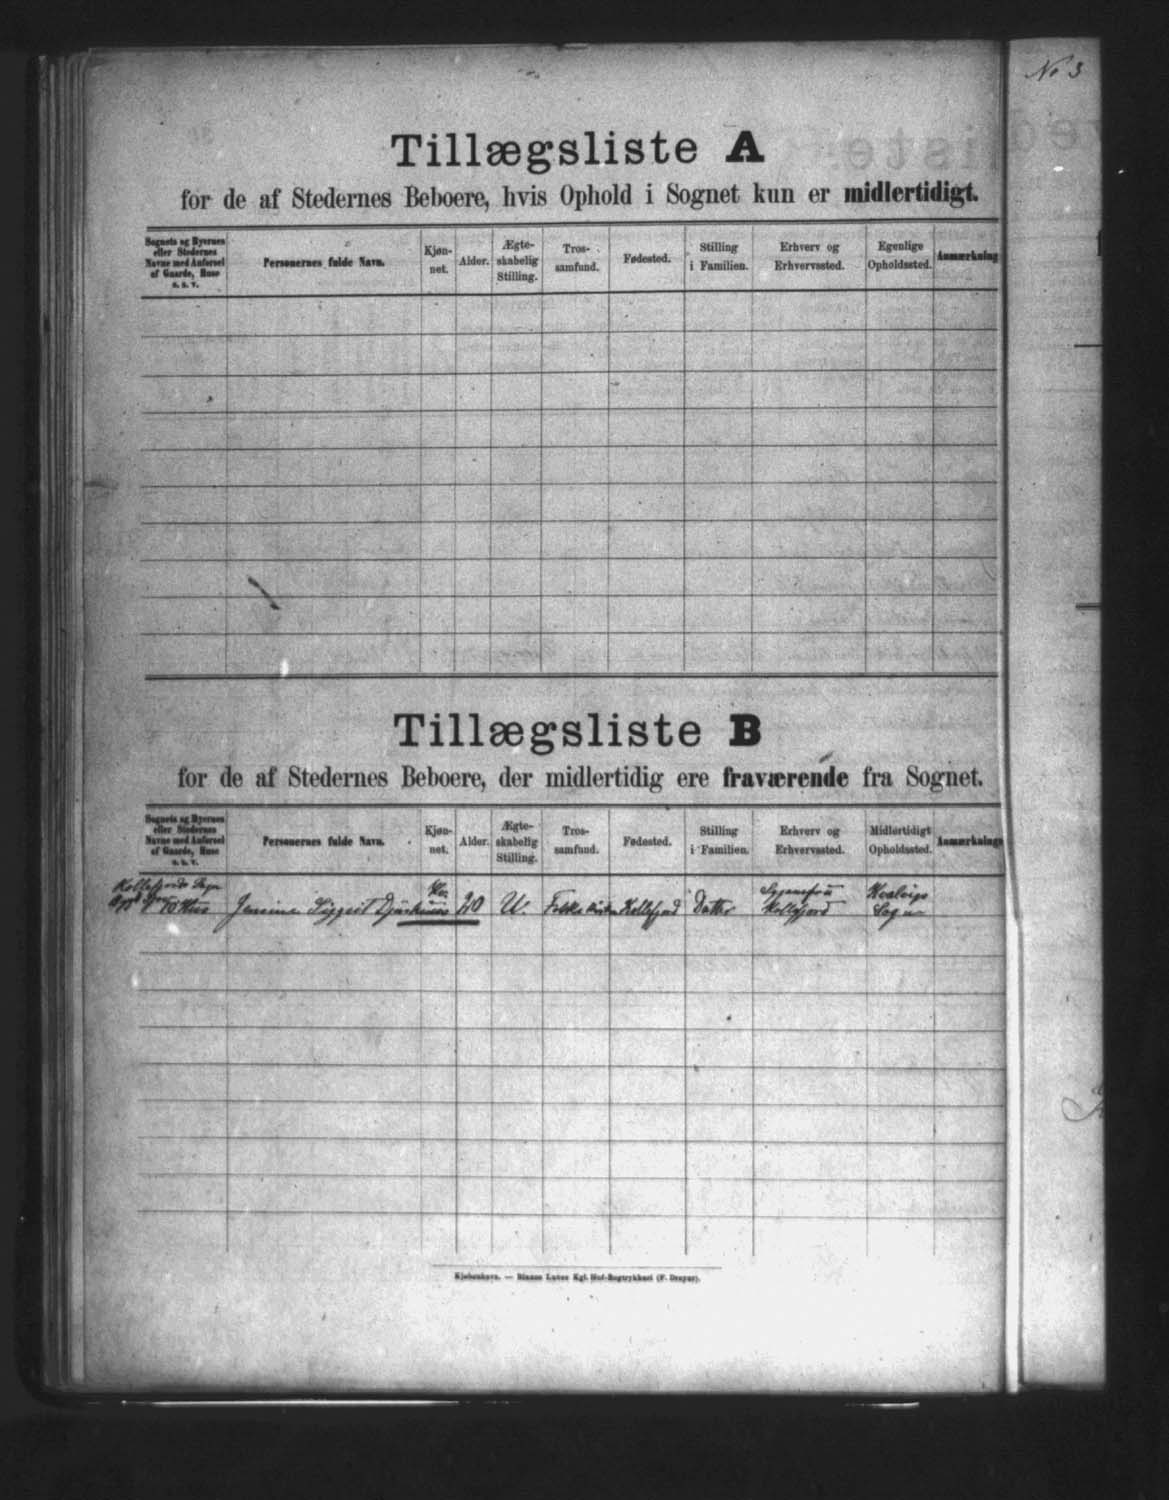 No 3
Tillægsliste A
for de af Stedernes Beboere, hvis Ophold i Sognet kun er midlertidigt.
Sognets og Byernes eller Stedernes Navne med Anførsel af Gaarde, Huse o. s. v. | Personernes fulde Navn. | Kjøn-net. | Alder. | Ægte-skabelig Stilling. | Tros-samfund. | Fødested. | Stilling i Familien. | Erhverv og Erhvervssted. | Egenlige Opholdssted. | Anmærkning
Tillægsliste B
for de af Stedernes Beboere, der midlertidig ere fraværende fra Sognet.
Sognets og Byernes eller Stedernes Navne med Anførsel af Gaarde, Huse o. s. v. | Personernes fulde Navn. | Kjøn-net. | Alder. | Ægte-skabelig Stilling. | Tros-samfund. | Fødested. | Stilling i Familien. | Erhverv og Erhvervssted. | Midlertidigt Opholdssted. | Anmærkninge
Kollefjords Sogn
Hus Jensine 20 U. Folkekirken Kollefjord Datter Kollefjord Sogn
Kjøbenhavn. — Bianco Lunos Kgl. Hof-Bogtrykkeri (F. Dreyer).